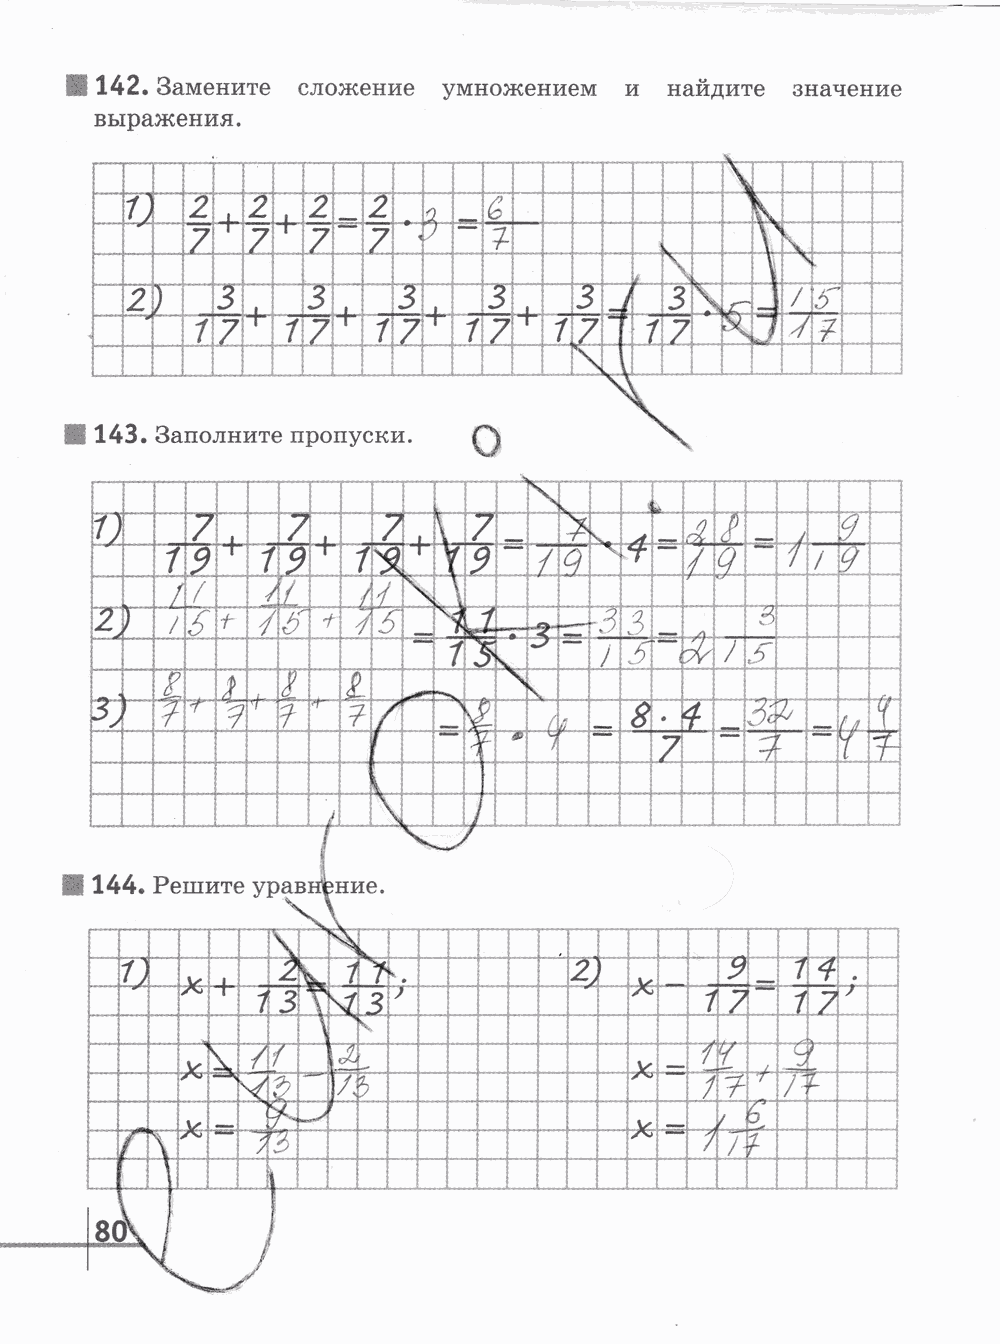 142. Замените сложение умножением и найдите значение
выражения.
1) 2/7 + 2/7 + 2/7 = 2/7 · 3 = 6/7
2) 3/17 + 3/17 + 3/17 + 3/17 + 3/17 = 3/17 · 5 = 15/17
143. Заполните пропуски.
1) 7/19 + 7/19 + 7/19 + 7/19 = 7/19 · 4 = 28/19 = 1 9/19
2) 11/15 + 11/15 + 11/15 = 11/15 · 3 = 33/15 = 2 3/15
3) 8/7 + 8/7 + 8/7 + 8/7 = 8/7 · 4 = 8·4/7 = 32/7 = 4 4/7
144. Решите уравнение.
1) x + 2/13 = 11/13; 2) x − 9/17 = 14/17;
x = 11/13 − 2/13 x = 14/17 + 9/17
x = 9/13 x = 1 6/17
80